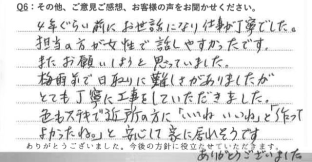 Q6：その他、ご意見ご感想、お客様の声をお聞かせください。
4年ぐらい前にお世話になり仕事が丁寧でした。
担当の方が女性で話しやすかったです。
またお願いしようと思っていました。
梅雨前で日取りに難しさがありましたが
とても丁寧に工事をしていただきました。
色もステキで近所の方に「いいね いいね」と「作って
よかったね。」と 安心して 家に居れそうです
ありがとうございました。今後の方針に役立たせていただきます。
ありがとうございました